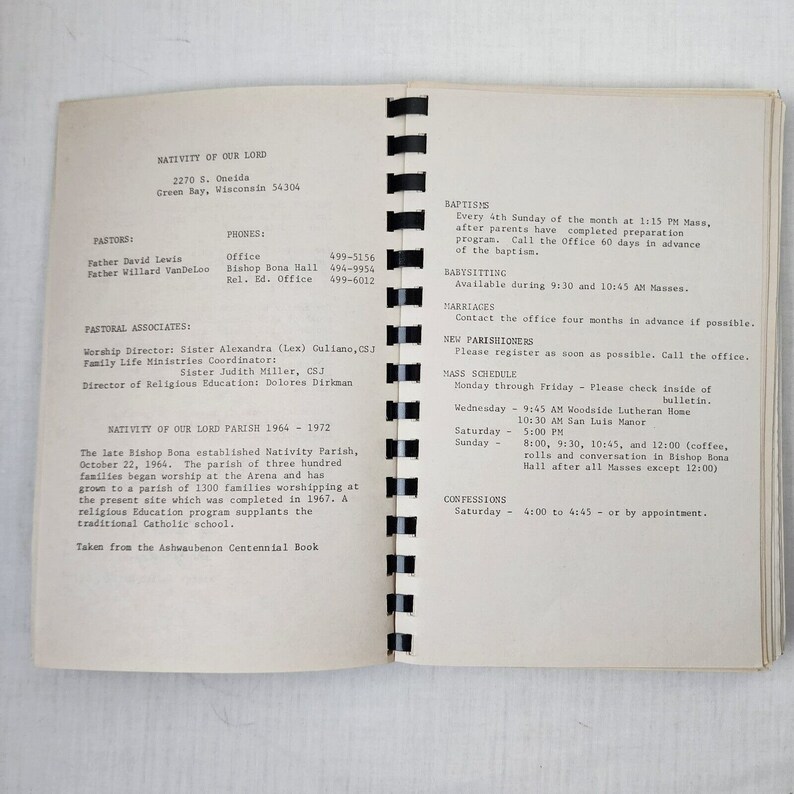 NATIVITY OF OUR LORD
2270 S. Oneida
Green Bay, Wisconsin 54304
PASTORS:
PHONES:
Father David Lewis
Father Willard VanDeLoo
Office 499-5156
Bishop Bona Hall 494-9954
Rel. Ed. Office 499-6012
PASTORAL ASSOCIATES:
Worship Director: Sister Alexandra (Lex) Guliano,CSJ
Family Life Ministries Coordinator:
Sister Judith Miller, CSJ
Director of Religious Education: Dolores Dirkman
NATIVITY OF OUR LORD PARISH 1964 - 1972
The late Bishop Bona established Nativity Parish,
October 22, 1964. The parish of three hundred
families began worship at the Arena and has
grown to a parish of 1300 families worshipping at
the present site which was completed in 1967. A
religious Education program supplants the
traditional Catholic school.
Taken from the Ashwaubenon Centennial Book
BAPTISMS
Every 4th Sunday of the month at 1:15 PM Mass,
after parents have completed preparation
program. Call the Office 60 days in advance
of the baptism.
BABYSITTING
Available during 9:30 and 10:45 AM Masses.
MARRIAGES
Contact the office four months in advance if possible.
NEW PARISHIONERS
Please register as soon as possible. Call the office.
MASS SCHEDULE
Monday through Friday - Please check inside of
bulletin.
Wednesday - 9:45 AM Woodside Lutheran Home
10:30 AM San Luis Manor
Saturday - 5:00 PM
Sunday - 8:00, 9:30, 10:45, and 12:00 (coffee,
rolls and conversation in Bishop Bona
Hall after all Masses except 12:00)
CONFESSIONS
Saturday - 4:00 to 4:45 - or by appointment.